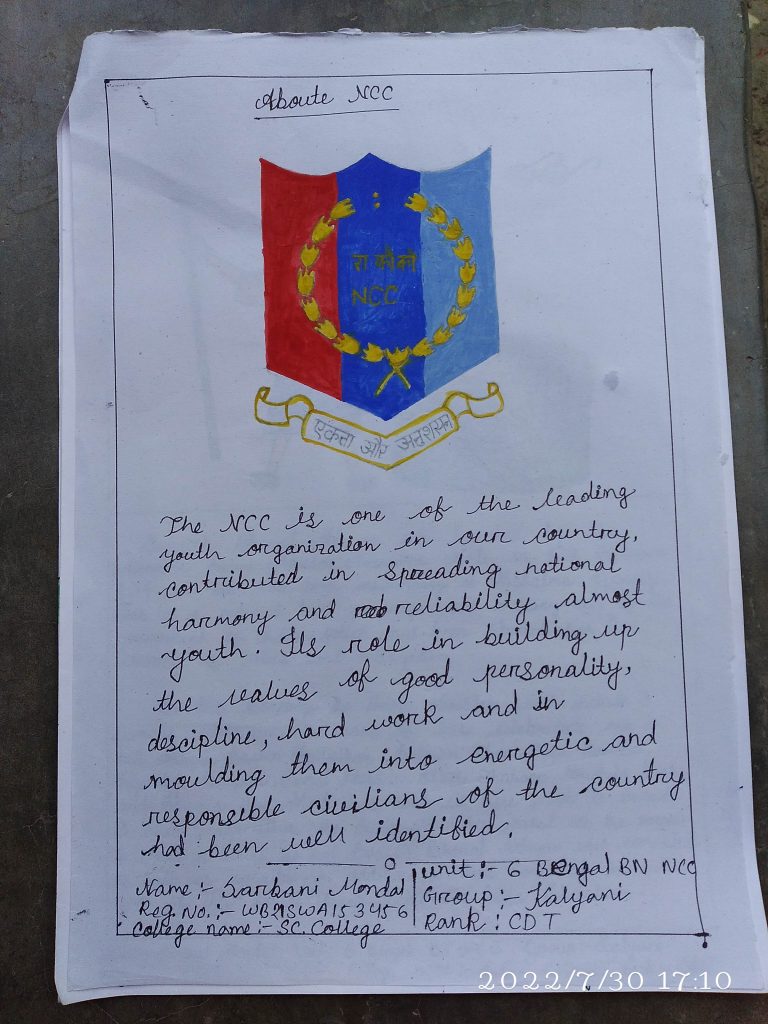 Aboute NCC
रा कै को
NCC
एकता और अनुशासन
The NCC is one of the leading
youth organization in our country,
contributed in spreading national
harmony and reliability almost
youth. Its role in building up
the values of good personality,
descipline, hard work and in
moulding them into energetic and
responsible civilians of the country
had been well identified.
Name:- Sarbani Mondal
Reg. No.:- WB21SWA153456
College name:- SC. College
unit:- 6 Bengal BN NCC
Group:- Kalyani
Rank: CDT
2022/7/30 17:10